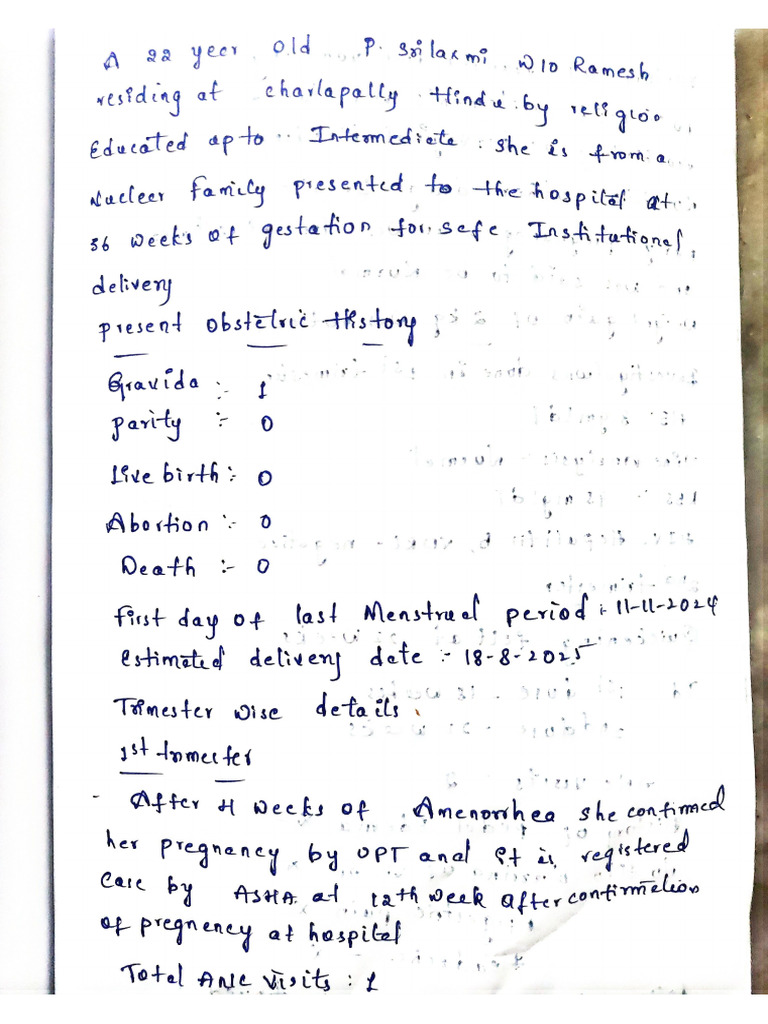 A 22 year old P. Srilaxmi W/o Ramesh
residing at charlapally Hindu by religion
Educated upto Intermediate. she is from a
Nuclear family presented to the hospital at
36 weeks of gestation for safe Institutional
delivery
present obstetric History
Gravida :- 1
parity :- 0
Live birth :- 0
Abortion :- 0
Death :- 0
first day of last Menstrual period :- 11-11-2024
estimated delivery date :- 18-8-2025
Trimester wise details
1st trimester
- After 4 weeks of Amenorrhea she confirmed
her pregnancy by UPT and it is registered
case by ASHA at 12th week after confirmation
of pregnancy at hospital
Total ANC Visits : 1